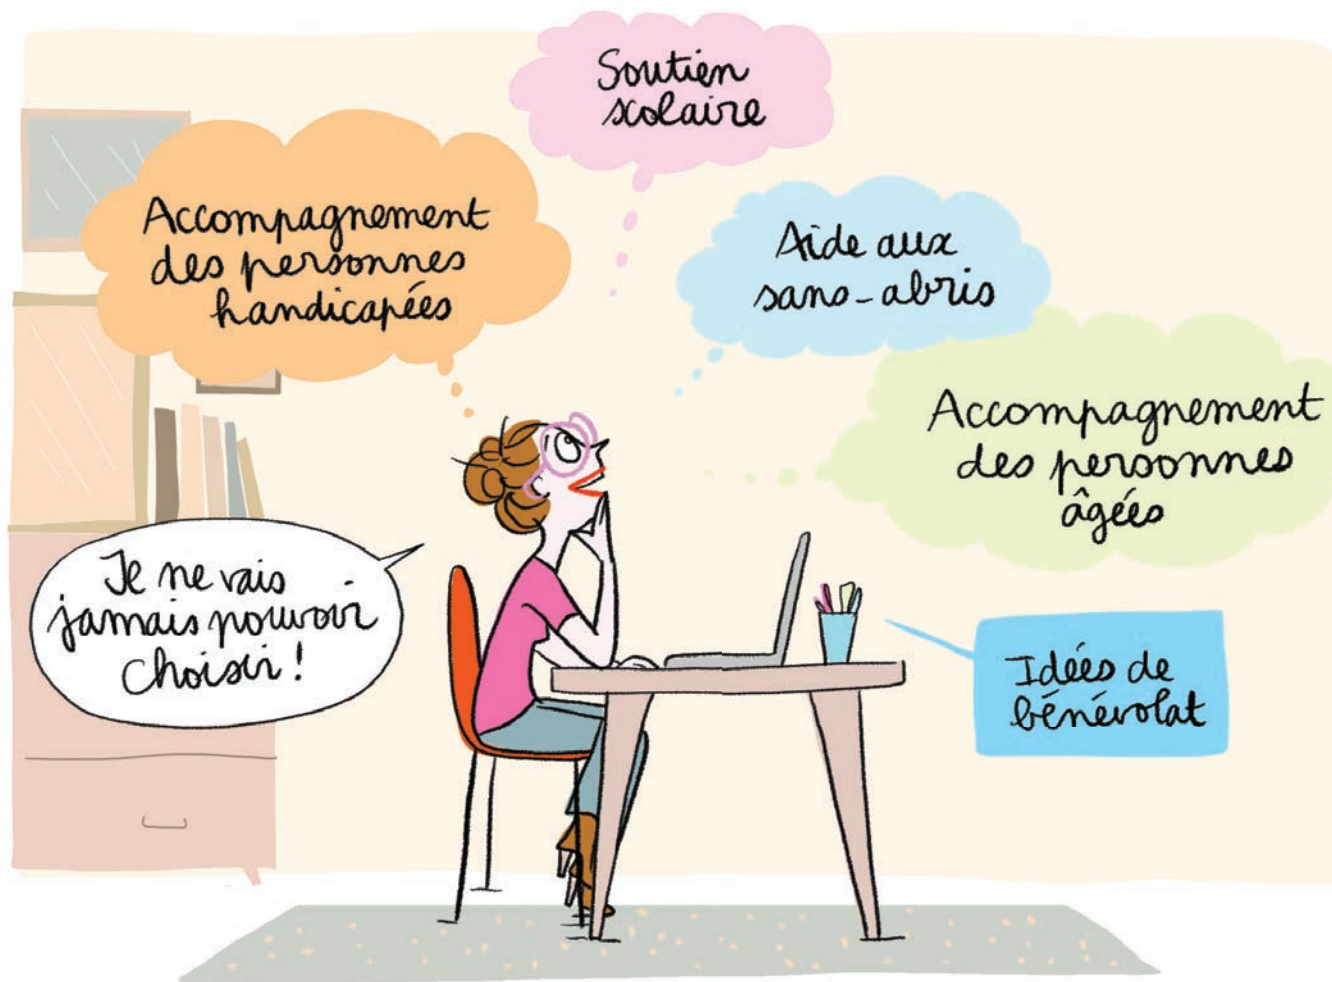 Soutien
scolaire
Accompagnement
des personnes
handicapées
Aide aux
sans-abris
Accompagnement
des personnes
âgées
Je ne vais
jamais pouvoir
choisir !
Idées de
bénévolat